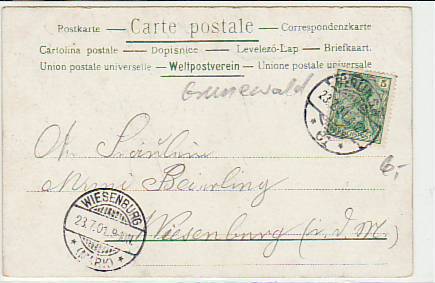 Postkarte — Carte postale — Correspondenzkarte
Cartolina postale — Dopisnice — Levelező-Lap — Briefkaart.
Union postale universelle — Weltpostverein — Unione postale universale
Grunewald
5
An Fräulein
Beierling
Wiesenburg (i. d. M.)
WIESENBURG
23.7.01. 9-
* (MARK) *
6,-